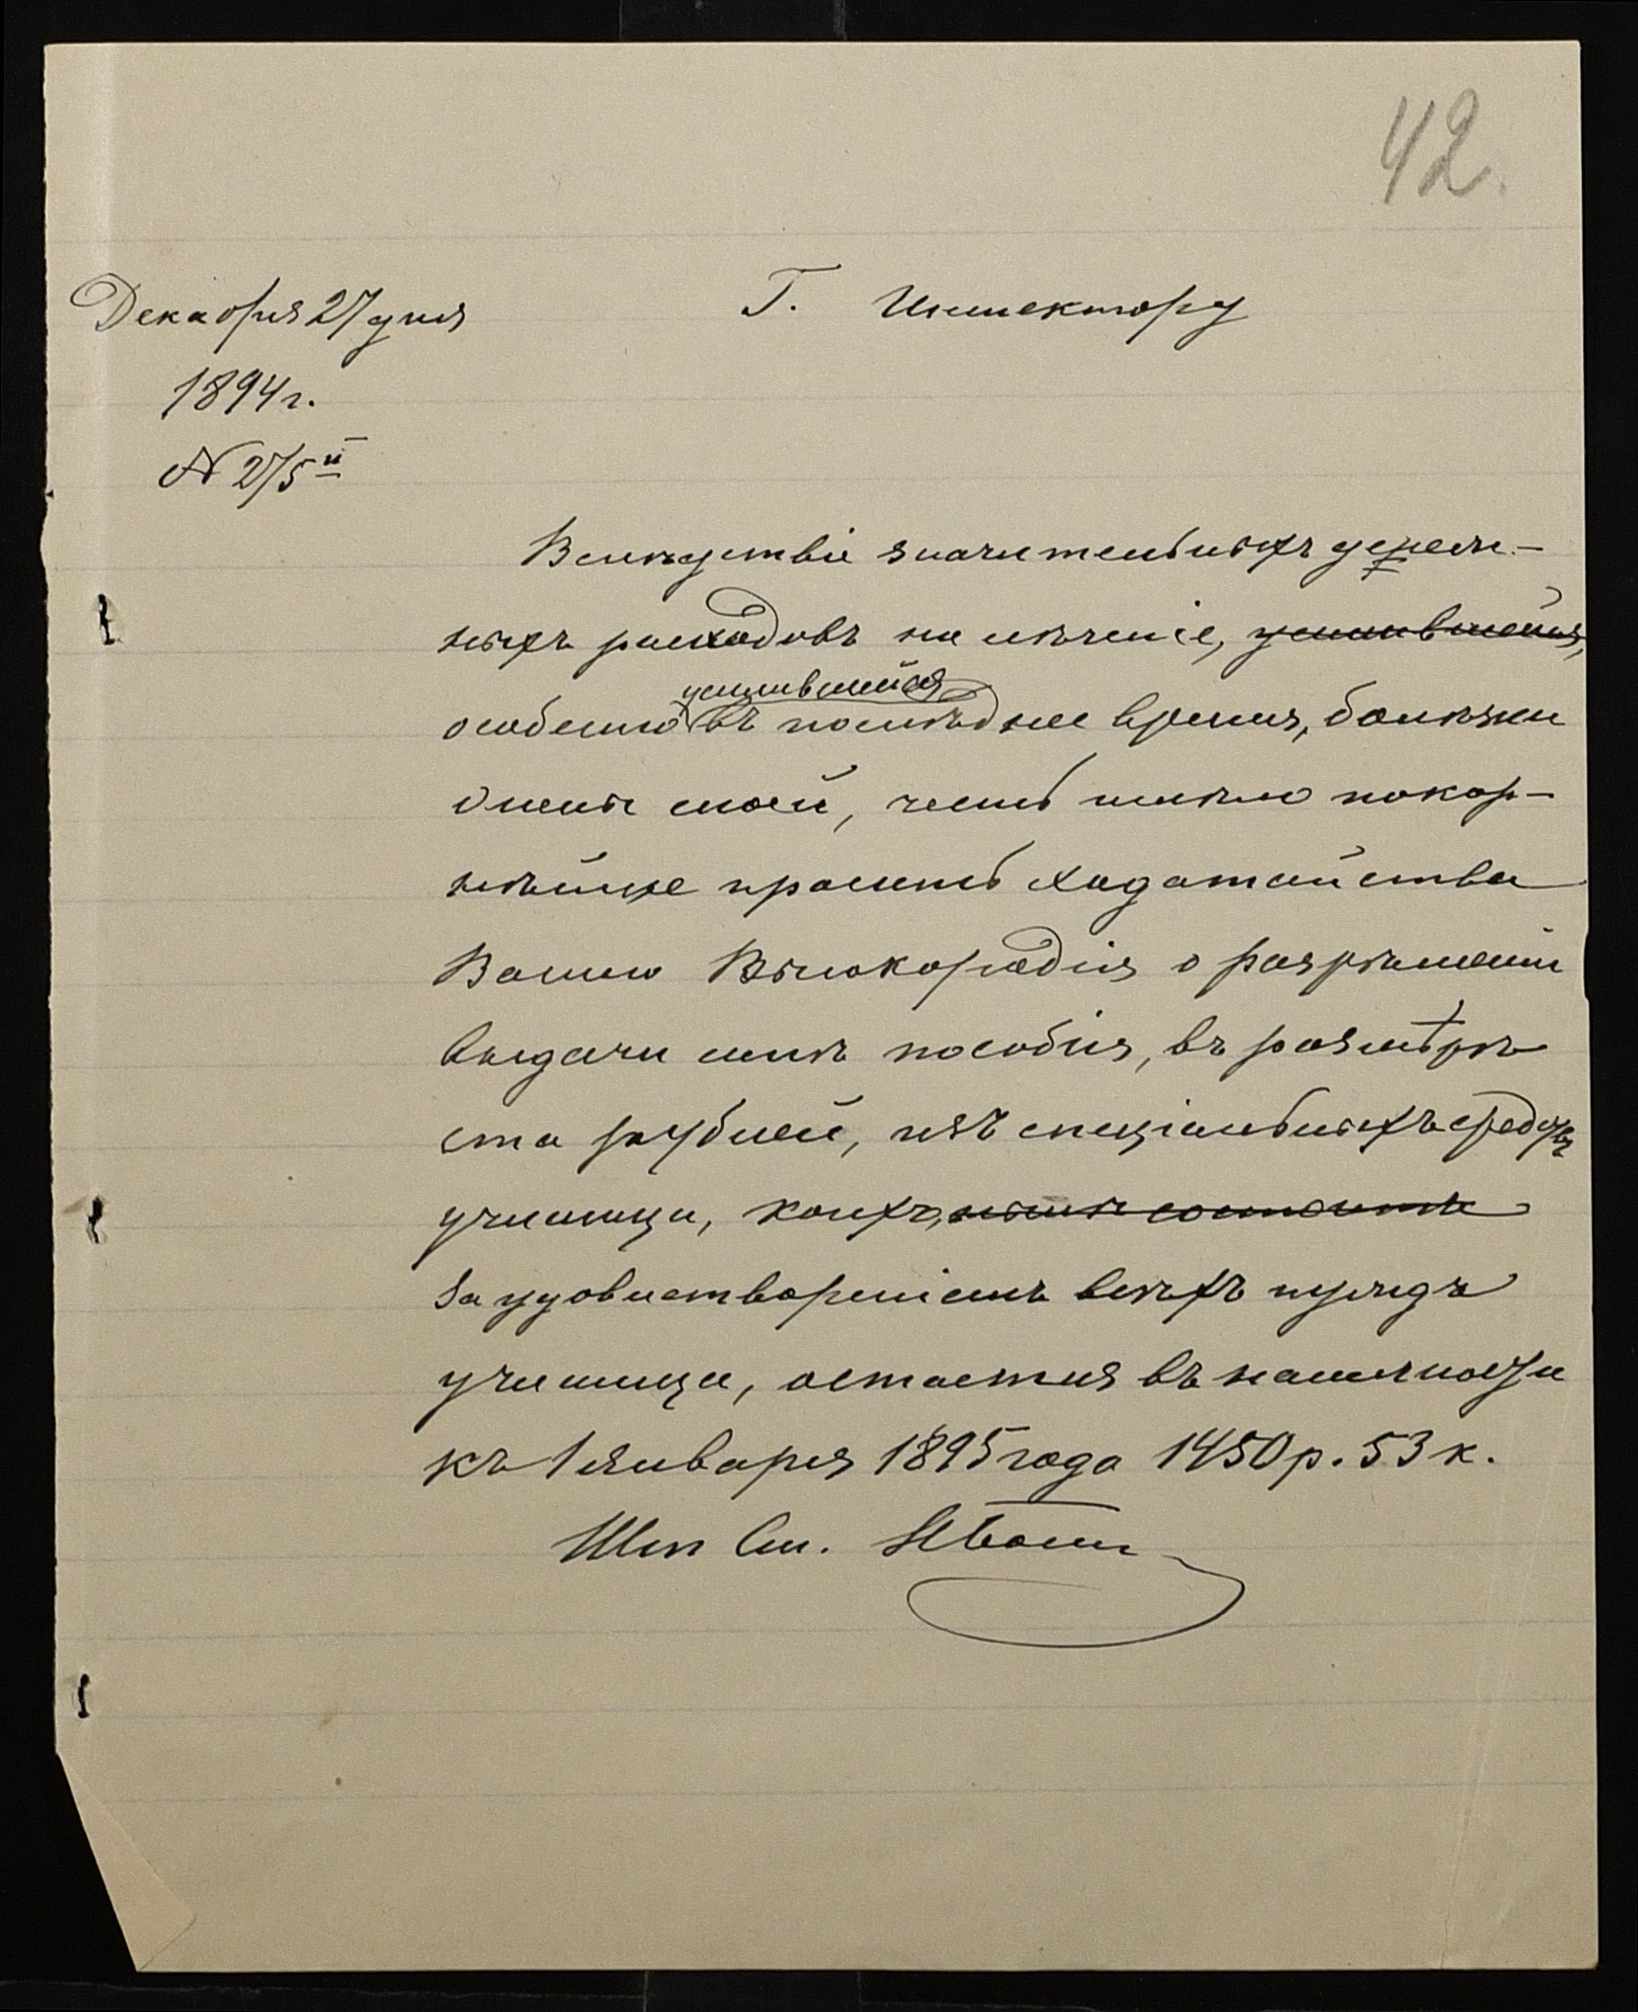 42.
Декабря 27 дня
1894 г.
№ 275 й
Г. Инспектору
Вслѣдствіе значительныхъ денеж-
ныхъ расходовъ на лѣченіе, усилившейся,
усилившейся
особенно въ послѣднее время, болѣзни
жены моей, честь имѣю покор-
нѣйше просить ходатайства
Вашего Высокородія о разрѣшеніи
выдачи мнѣ пособія, въ размѣрѣ
ста рублей, изъ спеціальныхъ средствъ
училища, коихъ,
за удовлетвореніемъ всѣхъ нуждъ
училища, остается въ наличности
къ 1 января 1895 года 1450 р. 53 к.
Шт. См.